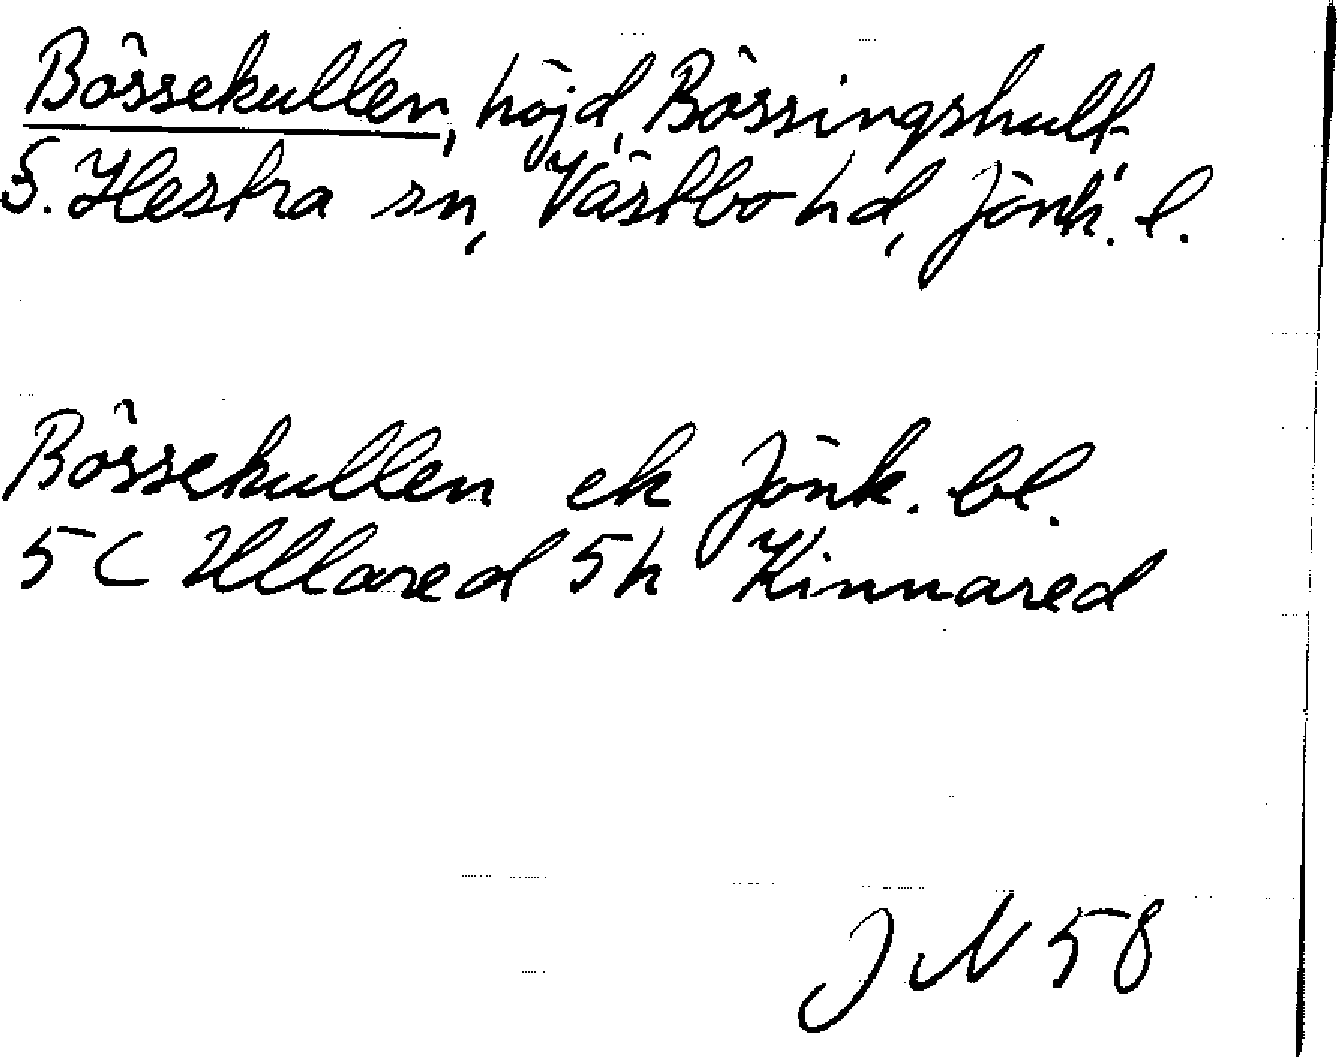 Bössekullen, höjd, Bössingshult
S. Hestra sn, Västbo hd, Jönk. l.
Bössekullen ek Jönk. bl.
5C Ullared 5h Kinnared
JN 58